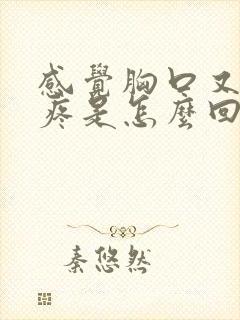 感覺胸口又
疼是怎麼回
秦悠然